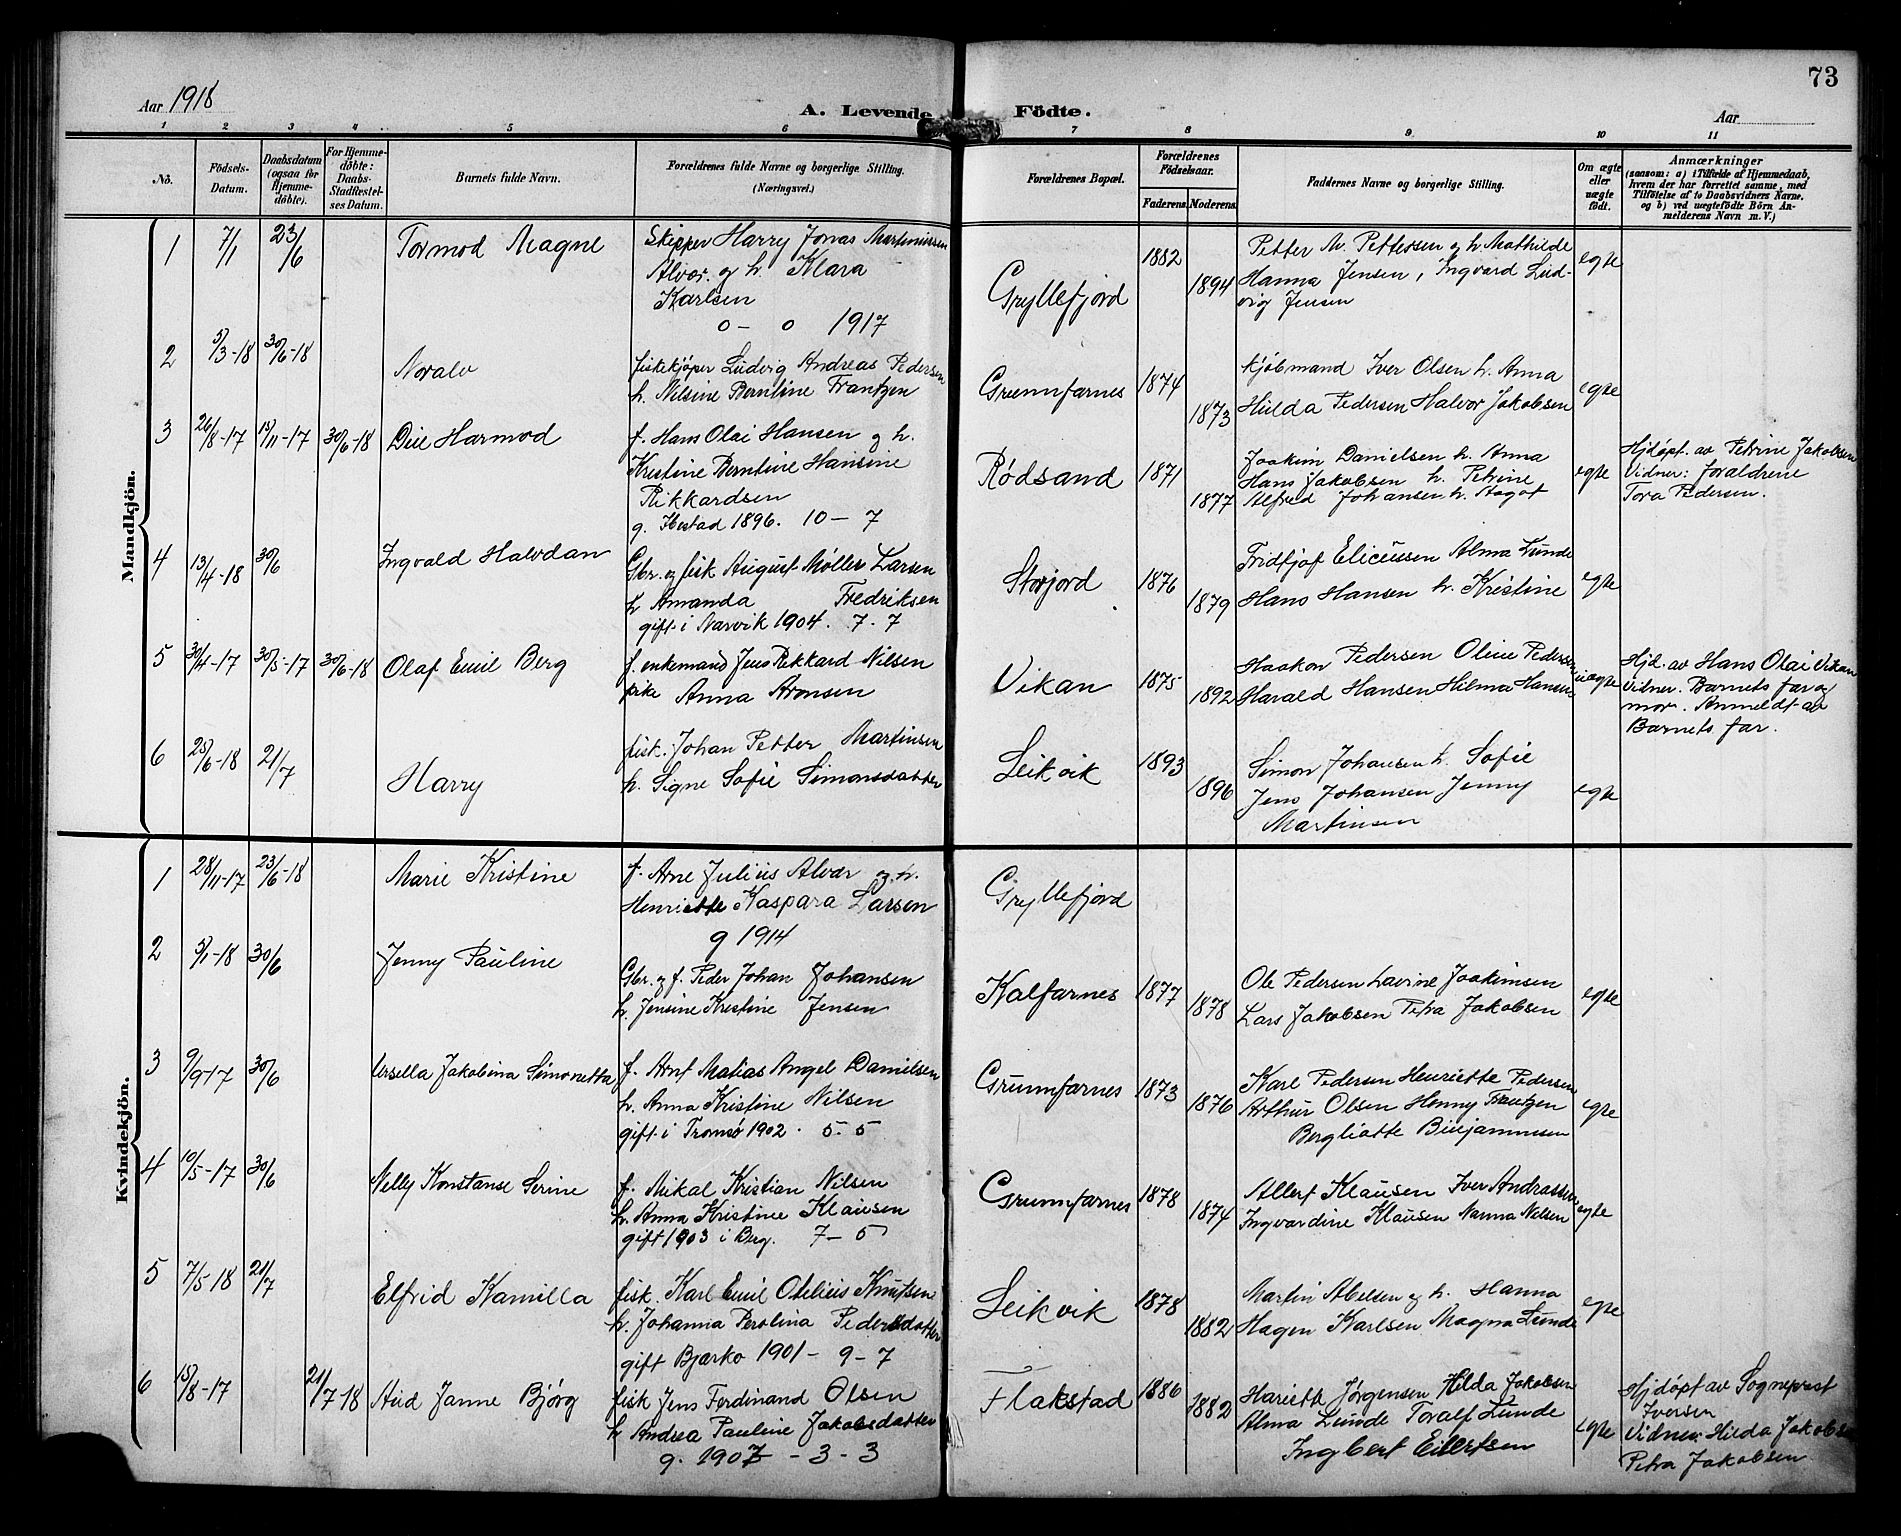 73
Aar 1918
A. Levende Födte.
Aar
1 2 3 4 5 6 7 8 9 10 11
No.
Födsels-Datum.
Daabsdatum (ogsaa for Hjemme-döbte).
For Hjemme-döbte: Daabs-Stadfæstel-ses Datum.
Barnets fulde Navn.
Forældrenes fulde Navne og borgerlige Stilling. (Næringsvei.)
Forældrenes Bopæl.
Forældrenes Födselsaar.
Faderens. Moderens.
Faddernes Navne og borgerlige Stilling.
Om ægte eller uægte födt.
Anmærkninger
(saasom: a) i Tilfælde af Hjemmedaab,
hvem der har forrettet samme, med
Tilföielse af to Daabsvidners Navne.
og b) ved uægtefödte Börn An-
melderens Navn m. V.)
Mandkjön.
1 7/1 23/6 Tormod Magne
Skipper Harry Jonas Martinussen
Alvar. og h. Klara
Karlsen
0 - 0 1917
Gryllefjord 1882 1894
Petter M. Pettersen og h. Mathilde
Hanna Jensen, Ingvard Lud-
vig Jensen
egte
2 5/3-18 30/6-18 Noralv
fiskekjøper Ludvig Andreas Pedersen
h. Nilsine Berntine Frantzen
Grunnfarnes 1874 1873
Kjøbmand Iver Olsen h. Anna
Hulda Pedersen Halvor Jakobsen
egte
3 26/8-17 15/11-17 30/6-18 Harmod
f. Hans Olai Hansen og h.
Kristine Berntine Hansine
Rikkardsen
g. Ibestad 1896. 10 - 7
Rødsand 1871 1877
Joakim Danielsen h. Anna
Hans Jakobsen h. Petrine
Alfred Johansen h. Aagot
egte
Hjdøpt. av Petrine Jakobsen
Vidner: foraldrene
Tora Pedersen.
4 13/4-18 30/6 Ingvald Halvdan
Gbr. og fisk August Møller Larsen
h. Amanda Fredriksen
gift i Narvik 1904. 7-7
Storjord 1876 1879
Fridtjof Eliceussen Alma Lunde
Hans Hansen h. Kristine
egte
5 30/4-17 30/5-17 30/6-18 Olaf Emil Berg
f. enkemand Jens Rikkard Nilsen
pike Anna Aronsen
Vikan 1875 1892
Haakon Pedersen Oline Pedersen
Harald Hansen Hilma Hansen
uegte
Hjd. av Hans Olai Vikan
Vidner. Barnets far og
mor. Anmeldt av
Barnets far.
6 25/6-18 21/7 Harry
fisk. Johan Petter Martinsen
h. Signe Sofie Simonsdatter
Leikvik 1893 1896
Simon Johansen h. Sofie
Jens Johansen Jenny
Martinsen
egte
Kvindekjön.
1 28/11-17 23/6-18 Marie Kristine
f. Arne Julius Alvar og h.
Henriette Kaspara Larsen
g 1914
Gryllefjord
2 5/1-18 30/6 Jenny Pauline
Gbr. og f. Peder Johan Johansen
h. Jensine Kristine Jensen
Kalfarnes 1877 1878
Ole Pedersen Lavine Joakimsen
Lars Jakobsen Petra Jakobsen
egte
3 9/9-17 30/6 Ursella Jakobina Simonetta
f. Arnt Matias Angel Danielsen
h. Anna Kristine Nilsen
gift i Tromsø 1902. 5-5
Grunnfarnes 1873 1876
Karl Pedersen Henriette Pedersen
Arthur Olsen Henny Frantzen
Bergliotte Binjaminsen
egte
4 10/5-17 30/6 Nelly Konstanse Serine
f. Mikal Kristian Nilsen
h. Anna Kristine Klausen
gift 1903 i Berg. 7-5
Grunnfarnes 1878 1874
Allert Klausen Iver Andrassen
Ingvardine Klausen Nanna Nilsen
egte
5 7/5-18 21/7 Elfrid Kamilla
fisk. Karl Emil Otelius Knutsen
h. Johanna Perolina Pedersdatter
gift Bjarkø 1901 - 9-7
Leikvik 1878 1882
Martin Abelsen og h. Hanna
Hagen Karlsen Magna Lunde
egte
6 15/8-17 21/7-18 Aud Janne Bjørg
fisk Jens Ferdinand Olsen
h Andrea Pauline Jakobsdatter
g. 1907 - 3-3
Flakstad 1886 1882
Hariette Jørgensen Hilda Jakobsen
Alma Lunde Toralf Lunde
Ingbert Eilertsen
egte
Hjdøpt av Sogneprest
Iversen
Vidner: Hilda Jakobsen
Petra Jakobsen